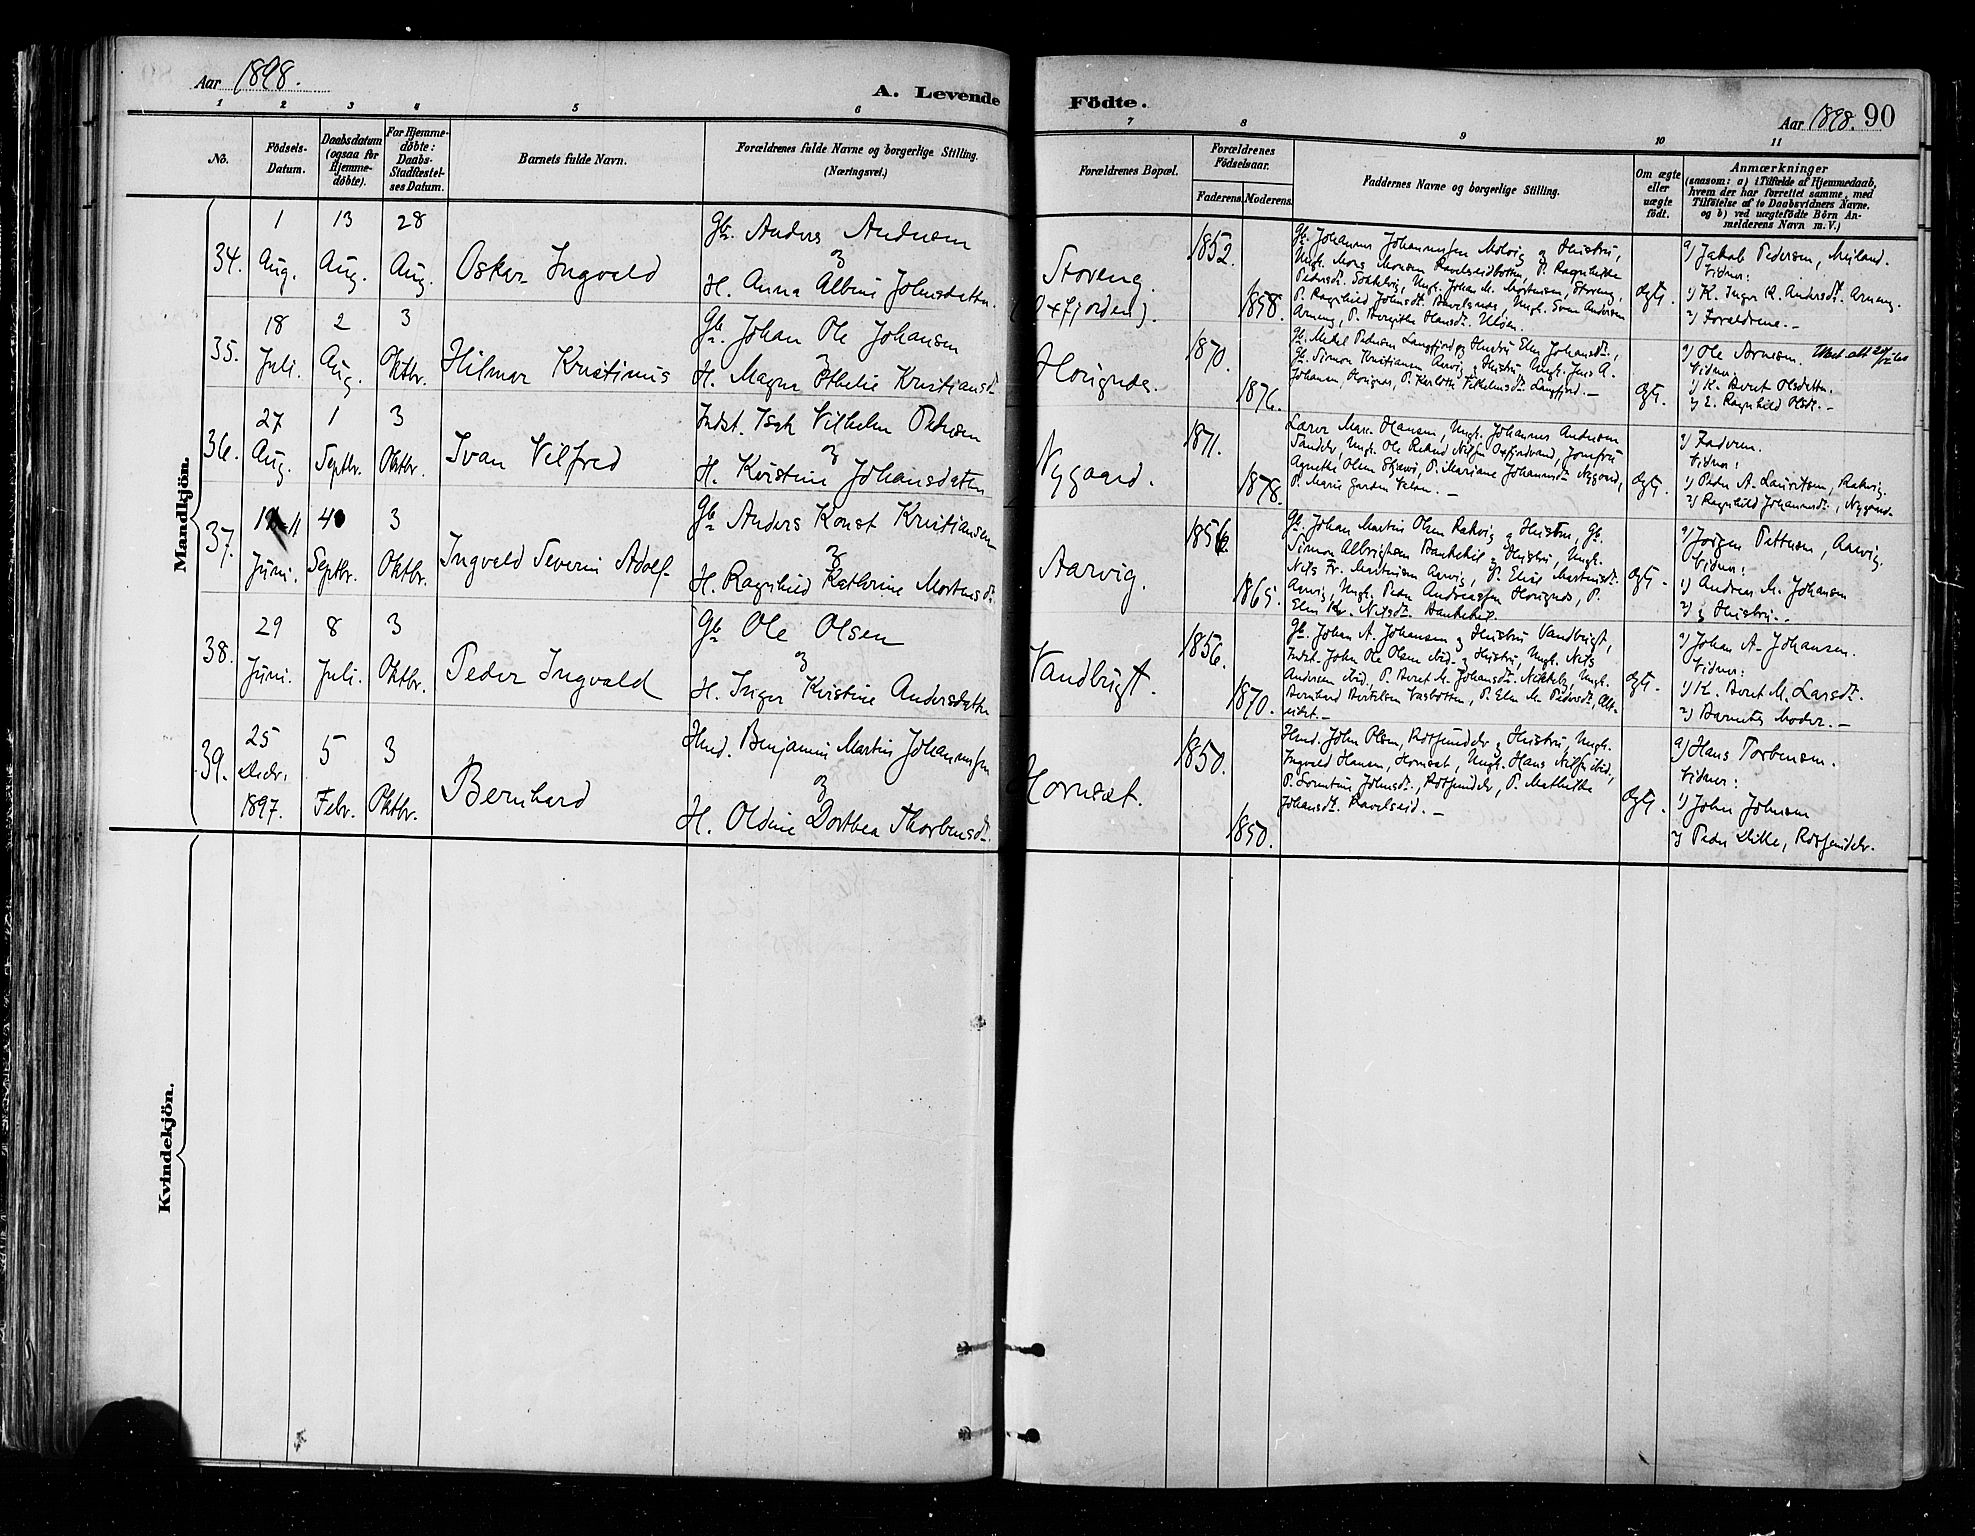 Aar 1898.
A. Levende Födte.
Aar 1898. 90
1 2 3 4 5 6 7 8 9 10 11
No.
Födsels-Datum.
Daabsdatum (ogsaa for Hjemme-döbte).
For Hjemme-döbte: Daabs-Stadfæstel-ses Datum.
Barnets fulde Navn.
Forældrenes fulde Navne og borgerlige Stilling.
(Næringsvei.)
Forældrenes Bopæl.
Forældrenes Födselsaar.
Faderens. Moderens.
Faddernes Navne og borgerlige Stilling.
Om ægte eller uægte födt.
Anmærkninger
(saasom: a) i Tilfælde af Hjemmedaab,
hvem der har forrettet samme, med
Tilföielse af to Daabsvidners Navne.
og b) ved uægtefödte Börn An-
melderens Navn m. V.)
Mandkjön.
34.
1 Aug.
13 Aug.
28 Aug.
Oskar Ingvald
Gb. Anders Andersen
og
H. Anna Albine Johnsdatter.
Storeng.
1852.
1858.
Gb. Johannes Johannessen Molvig og Hustru,
Ungk. Mons Monsen Ravelseidbotten, P. Ragnhilde
Pedersdt. Sokkelvig, Ungk. Johan M. Mortensen, Storeng,
P. Ragnhild Johnsdt. Ravelsnes, Ungk. Sven Andersen
Arneng, P. Bergithe Hansdt. Uløen.
Ægte.
a) Jakob Pedersen, Meiland.
Vidner:
1) K. Inger K. Andersdt. Arneng
2) Forældrene.-
35.
18 Juli.
2 Aug.
3 Oktbr.
Hilmar Kristinus
Gb. Johan Ole Johansen
og
H. Magna Othelie Kristiansdt.
Horignes.
1870.
1876.
Gb. Mikkel Pedersen Langfjord og Hustru Elen Johansdt.,
Gb. Simon Kristiansen Aarvig og Hustru, Ungk. Jens A.
Johansen, Horignes, P. Karlotte Vilhelmsdt. Langfjord.-
Ægte.
a) Ole Arnesen.
Vidner:
1) K. Beret Olsdatter.
2) E. Ragnhild Olsdt.-
36.
27 Aug.
1 Septbr.
3 Oktbr.
Ivan Vilfred
Indst. Isak Vilhelm Pedersen
og
H. Kristine Johansdatter
Nygaard.
1871.
1878.
Lærer Marx Hansen, Ungk. Johannes Andersen
Agnethe Olsen Skjærvø, P. Mariane Johannesdt. Nygaard,
Ægte.
a) Faderen.
Vidner:
1) Peder A. Lauritsen, Rakvig.
2) Ragnhild Johannesdt., Nygaard.
37.
11 Juni.
4 Septbr.
3 Oktbr.
Ingvald Severin Adolf
Gb. Anders Konst Kristiansen
og
H. Ragnhild Kathrine Mortensdt.
Aarvig.
1856.
1865.
Gb. Johan Martin Olsen Rakvig og Hustru, Gb.
Simon Albrigtsen Bankekeil og Hustru, Ungk.
Nils Fr. Martinsen Aarvig, P. Elise Martinsdt.
Aarvig, Ungk. Peder Andreassen Horignes, P.
Elen Kr. Nilsdt. Bankekeil.
Ægte.
a) Jørgen Pettersen, Aarvig.
Vidner:
1) Andreas M. Johansen
2) og Hustru.-
38.
29 Juni.
8 Juli.
3 Oktbr.
Peder Ingvald
Gb. Ole Olsen
og
H. Inger Kristine Andersdatter
Vandbugt.
1856.
1870.
Gb. Johan A. Johansen og Hustru Vandbugt,
Indst. John Ole Olsen ibid. og Hustru, Ungk. Nils
Andersen ibid, P. Beret M. Johansdt. Nikkeby, Ungk.
Bernhard Bertelsen Vasbotten, P. Elen M. Pedersdt., Alt-
eidet.-
Ægte.
a) Johan A. Johansen.
Vidner:
1) K. Beret M. Larsdt.
2) Barnets Moder.-
39.
25 Decbr. 1897.
5 Febr.
3 Oktbr.
Bernhard
Hmd. Benjamin Martin Johannessen
og
H. Oldine Dorthea Thorbensdt.
Hornsæt.
1850.
1850.
Hmd. John Olsen, Rotsundelv og Hustru, Ungk.
Ingvald Hansen, Hornsæt, Ungk. Hans Nilsen ibid,
P. Sørentine Johnsdt., Rotsundelv, P. Mathilde
Johansdt. Ravelseid.-
Ægte.
a) Hans Torbensen.
Vidner:
1) John Johnsen
2) Peder Dikke, Rotsundelv.
Kvindekjön.